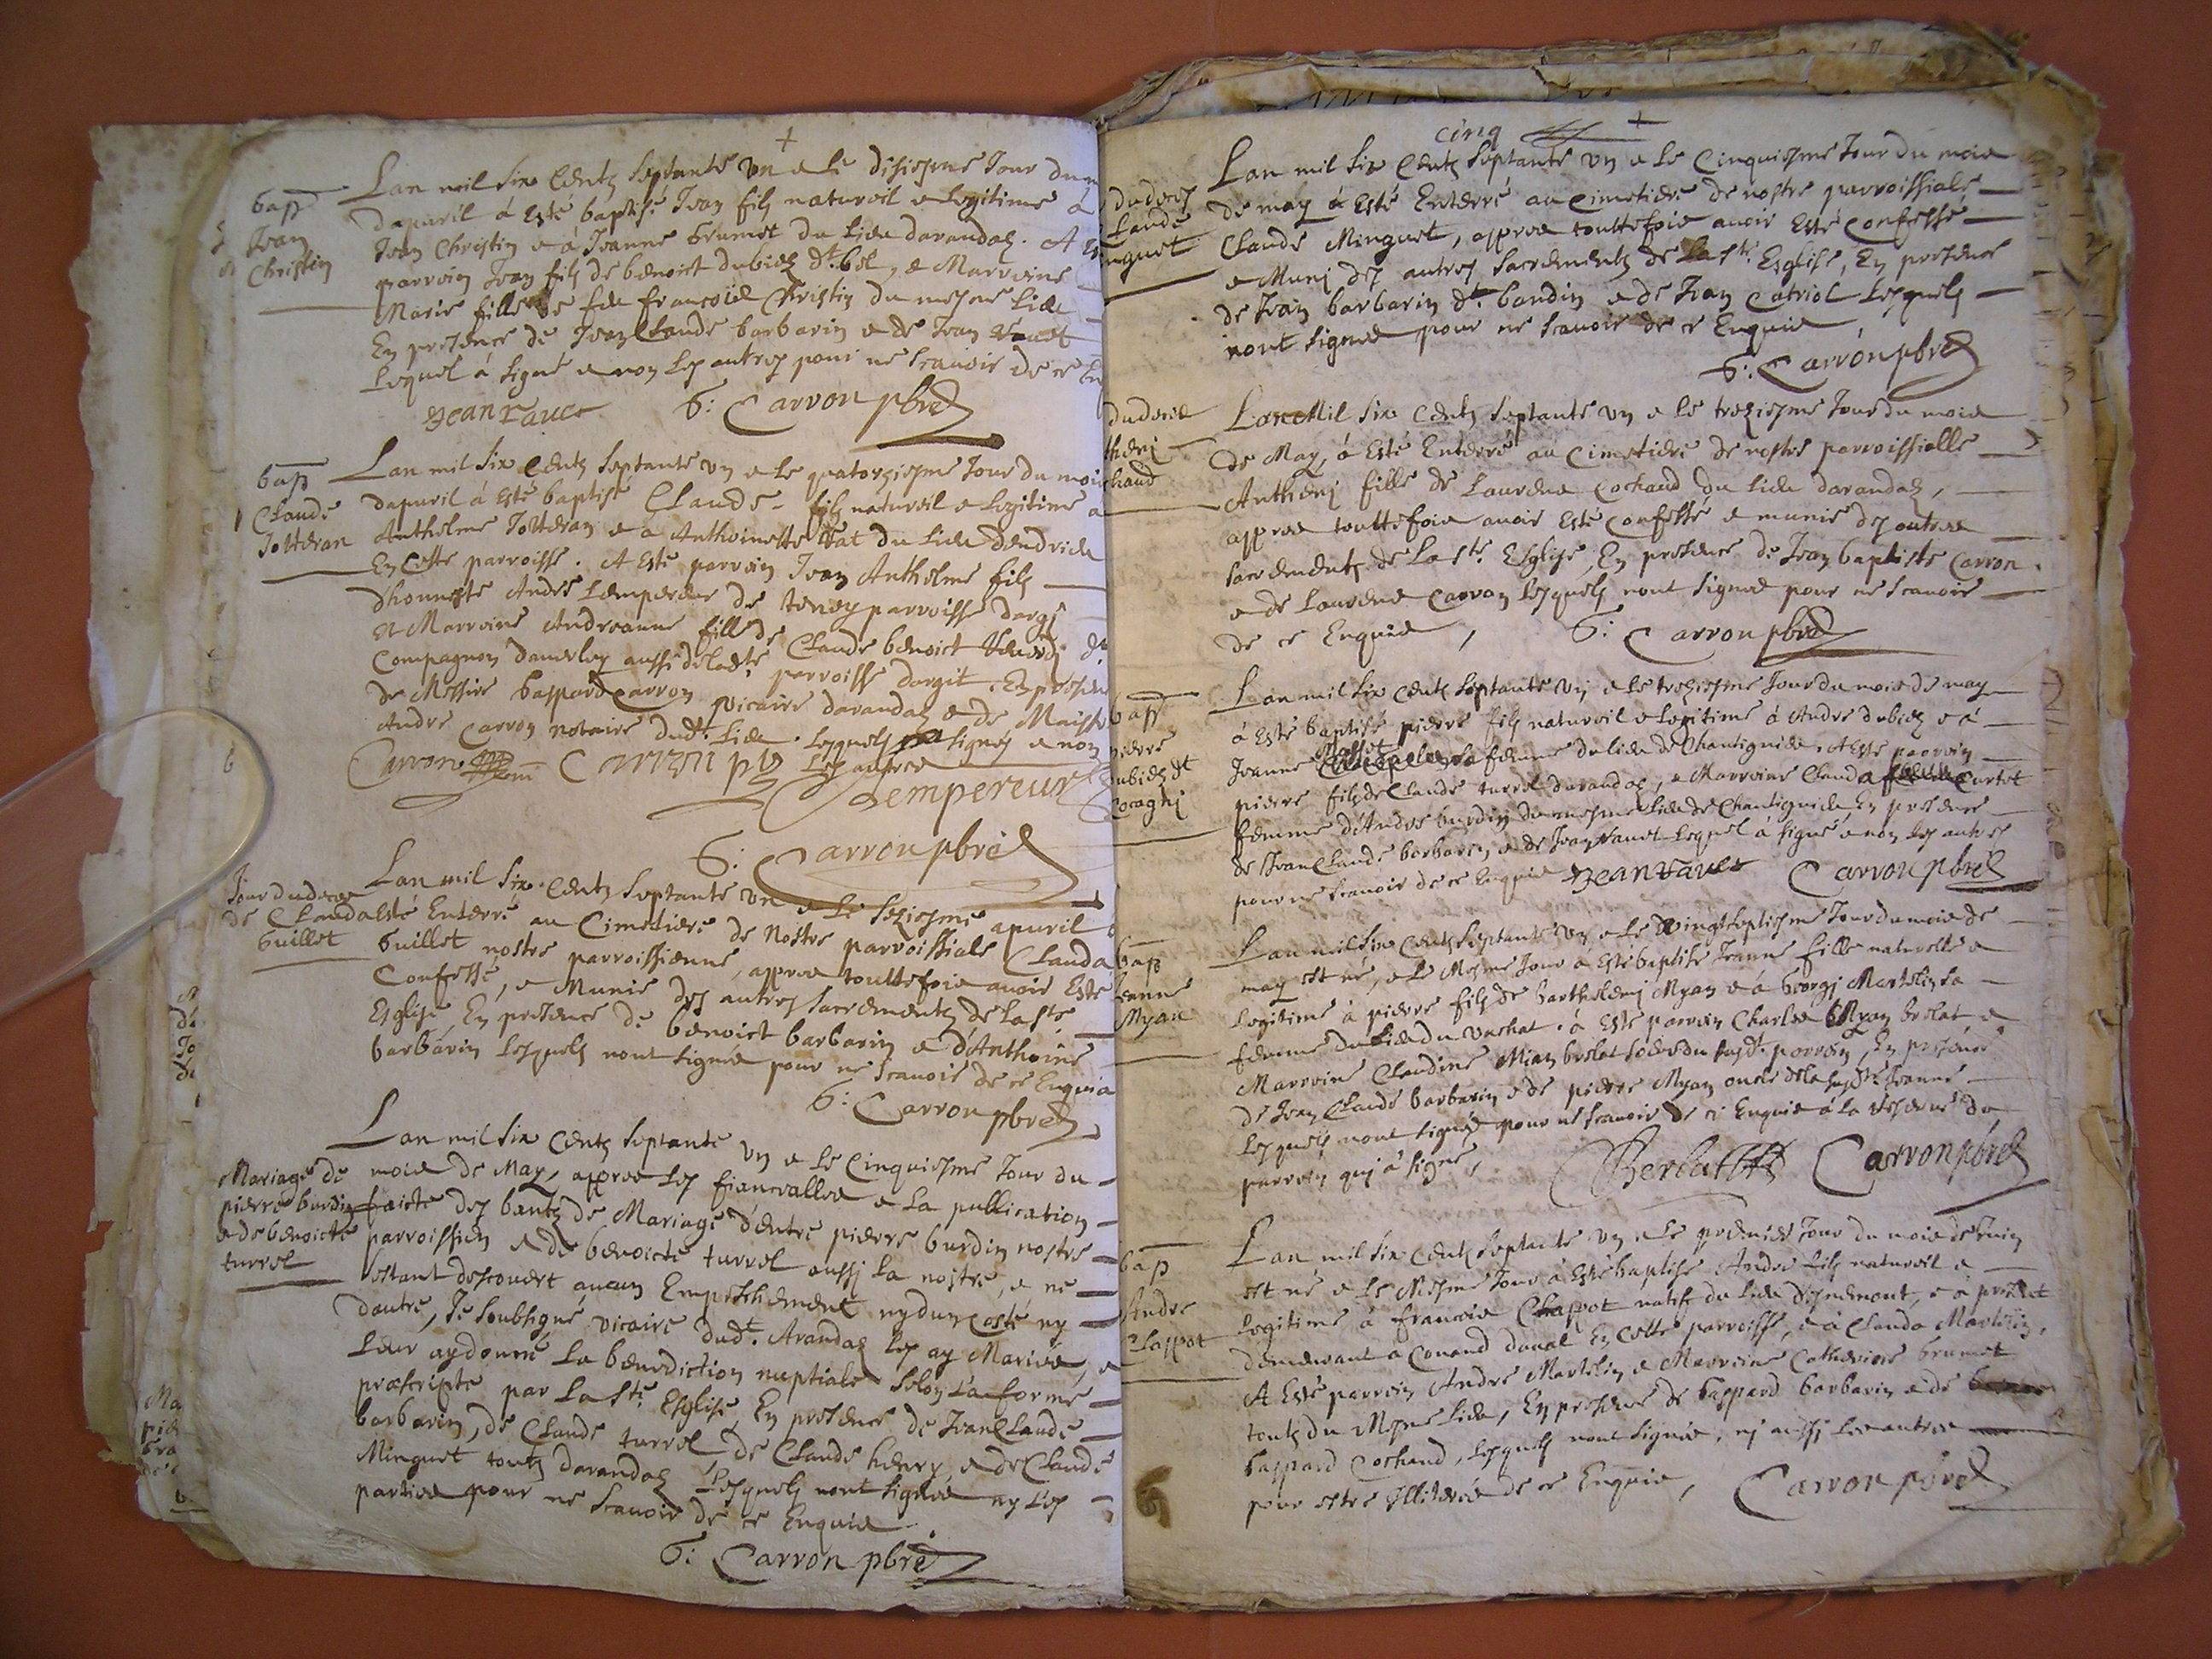 bap
Jean
Christin
Lan mil six Centz septante un e le disiesme Jour du
dapuril á Esté baptisé Jean filz naturéil e legitime à
Jean Christin e à Jeanne brumet du lieu darandaz. A
parroin Jean filz de benoict dubiez dt. bel, e Marroine
Marie fille de feu francois Christin du mesme lieu
En presence de Jean Claude barbarin e de Jean vauct
Lequel á signé e non les autres pour ne scauoir de ce
Jean vauct G: Carron pbre
bap
Claude
Jotteran
Lan mil six Centz septante un e le quatorziesme Jour du mois
dapuril á Esté baptisé Claude filz natureil e legitime a
Anthelme Jotteran e a Anthoinette du lieu dendrieu
En Cette parroisse. A Esté parroin Jean Anthelme filz
dhonneste André Lempereur de tenay parroisse dargi
Et Marroine Andreanne fille de Claude benoict
Compagnon daverley aussi deladte. parroisse dargit. En presen
de Messire Gaspard Carron vicaire darandaz e de Maistre
André Carron notaire dudt. lieu. Lesquels signés e non
les autres
Carron Carron
Lempereur
G: Carron pbre
Jour du deces
de Clauda
Guillet
Lan mil six Centz septante un e le seziesme apuril
á Esté Enterré au Cimetiere de Nostre parroissiale Clauda
Guillet nostre parroissienne, appres touttefois auoir Esté
Confessé, e Munie des autres sacrements de la ste
Esglise, En presence de benoict barbarin e d'Anthoine
barbarin lesquels nont signés pour ne scauoir de ce Enquis
G: Carron pbre
Mariage de
pierre burdin
e de benoicte
turrel
Lan mil six Centz septante un e le Cinquiesme Jour du
mois de May, appres les fiancealles e la publication
faicte des bantz de Mariage d'entre pierre burdin nostre
parroissien e de benoicte turrel aussi la nostre, e ne
sestant descouert aucun Empeschement ny dun costé ny
dautre, Je soubsigné vicaire dudt. Arandaz les ay Mariés, e
leur ay donné la benediction nuptiale selon la forme
præscripte par la ste. Esglise, En presence de Jean Claude
barbarin, de Claude turrel, de Claude henry, e de Claude
Minguet toutz darandaz lesquels nont signés ny les
parties pour ne scauoir de ce Enquis
G: Carron pbre
cinq
du deces
Claude
Minguet
Lan mil six Centz septante un e le Cinquiesme Jour du mois
de may á Esté Enterré au Cimetiere de nostre parroissiale
Claude Minguet, appres touttefois auoir Esté Confessé
e Muni des autres sacrements de la ste Esglise, En presence
de Jean barbarin dt. bandin e de Jean Catriol Lesquels
nont signés pour ne scauoir de ce Enquis
G: Carron pbre
du deces
Cochaud
Lan Mil six Centz septante un e le treziesme Jour du mois
de May, á Esté Enterré au Cimetiere de nostre parroissialle
Antheni fille de Laurens Cochaud du lieu darandaz,
appres touttefois auoir Esté Confessé e munie des autres
sacrements de la ste. Esglise, En presence de Jean baptiste Carron
e de Laurens Carron lesquels nont signés pour ne scauoir
de ce Enquis, G: Carron pbre
bap
pierre
dubiez dt
Cocaghi
Lan mil six Centz septante un e le treziesme Jour du mois de may
á Esté baptisé pierre filz natureil e legitime à André dubiez e á
Jeanne Masset sa femme du lieu de Chantiguieu. A Esté parroin
pierre filz de Claude turrel darandaz, e Marroine Clauda Curtet
femme d'André burdin du mesme lieu de Chantiguieu En presence
de Jean Claude barbarin e de Jean vauct Lequel á signé e non les autres
pour ne scauoir de ce Enquis Jean vauct Carron pbre
bap
Jeanne
Myan
Lan mil six Centz septante un e le vingtseptiesme Jour du mois de
may est né, e le Mesme Jour a Esté baptisé Jeanne fille naturelle e
legitime à pierre filz de barthelemi Myan e á Georgi Martelin sa
femme du lieu du vachat. á Esté parroin Charles Myan brelat, e
Marroine Claudine Mian brelat soeur du susdt. parroin, En presence
de Jean Claude barbarin e de pierre Myan oncle de la susdte. Jeanne
lesquels nont signés pour ne scauoir de ce Enquis á la reserue du
parroin qui á signé,
Carron pbre
bap
André
Chappot
Lan mil six Centz septante un e le premier Jour du mois de Juin
est né e le Mesme Jour á Esté baptisé André filz natureil e
legitime à francois Chappot natif du lieu d'Jnimont, e á present
demeurant a Conand daual En Cette parroisse, e á Clauda Martelin,
A Esté parroin André Martelin e Marroine Catherine brumet
toutz du Mesme lieu, En presence de Gaspard barbarin e de
Gaspard Cochaud, lesquels nont signés, ni aussi les autres
pour estre illiterés de ce Enquis, Carron pbre